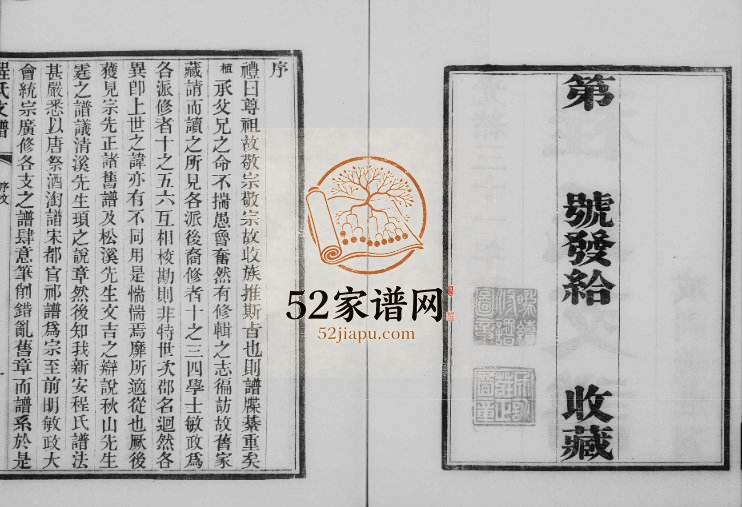 第 號發給 收藏
序
禮曰尊祖故敬宗敬宗故收族推斯旨也則譜牒綦重矣
植承父兄之命不揣愚魯奮然有修輯之志徧訪故舊家
藏請而讀之所見各派後裔修者十之三四學士敏政爲
各派修者十之五六互相校勘則非特世次郡名迥然各
異卽上世之諱亦有不同用是惴惴焉靡所適從也厥後
獲見宗先正諸舊譜及松溪先生文吉之辯說秋山先生
霆之譜議清溪先生頊之說章然後知我新安程氏譜法
甚嚴悉以唐祭酒澍譜宋都官祁譜爲宗至前明敏政大
會統宗廣修各支之譜肆意筆削錯亂舊章而譜系於是
程氏支譜
序文
一
52家谱网
52jiapu.com